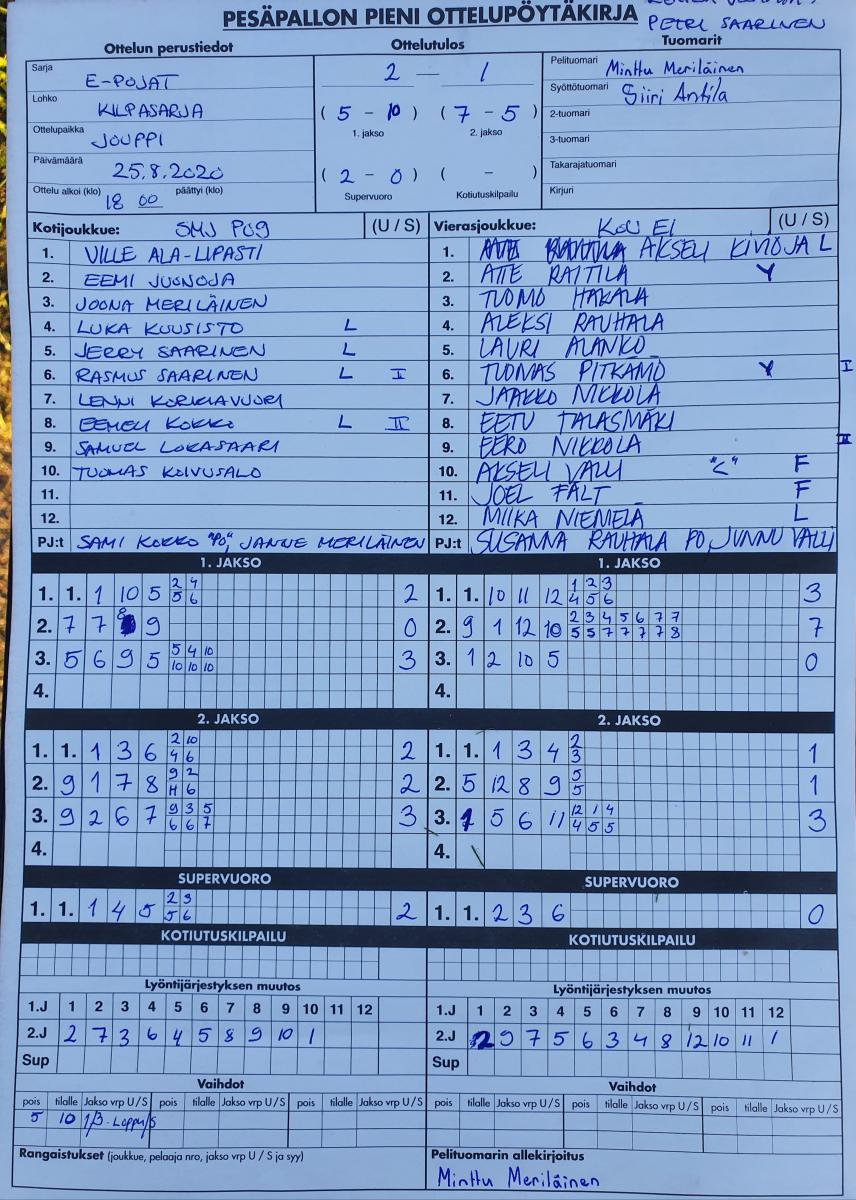 PESÄPALLON PIENI OTTELUPÖYTÄKIRJA
PETRI SAARINEN
Ottelun perustiedot Ottelutulos Tuomarit
Sarja E-POJAT
Lohko KILPASARJA
Ottelupaikka JOUPPI
Päivämäärä 25.8.2020
Ottelu alkoi (klo) 18 00 päättyi (klo)
2 — 1
( 5 - 10 ) ( 7 - 5 )
1. jakso 2. jakso
( 2 - 0 ) ( - )
Supervuoro Kotiutuskilpailu
Pelituomari Minttu Meriläinen
Syöttötuomari Siiri Antila
2-tuomari
3-tuomari
Takarajatuomari
Kirjuri
Kotijoukkue: SMJ PUG (U / S)
1. VILLE ALA-LIPASTI
2. EEMI JUONOJA
3. JOONA MERILÄINEN
4. LUKA KUUSISTO L
5. JERRY SAARINEN L
6. RASMUS SAARINEN L I
7. LENNI KORKIAVUORI
8. EEMELI KOKKO L II
9. SAMUEL LOKASAARI
10. TUOMAS KOIVUSALO
11.
12.
PJ:t SAMI KOKKO "PO", JANNE MERILÄINEN
Vierasjoukkue: KoU EI (U / S)
1. AKSELI KIVIOJA L
2. ATTE RAITILA Y
3. TUOMO HAKALA
4. ALEKSI RAUHALA
5. LAURI ALANKO
6. TUOMAS PITKÄMÖ Y I
7. JAAKKO NIKKOLA
8. EETU TALASMÄKI
9. EERO NIKKOLA II
10. AKSELI VALLI "C" F
11. JOEL FÄLT F
12. MIIKA NIEMELÄ L
PJ:t SUSANNA RAUHALA PO, JUNNU VALLI
1. JAKSO
1. 1. 1 10 5 2 4 2
5 6
2. 7 7 8 9 0
3. 5 6 9 5 5 4 10 3
10 10 10
4.
1. JAKSO
1. 1. 10 11 12 1 2 3 3
4 5 6
2. 9 1 12 10 2 3 4 5 6 7 7 7
5 5 7 7 7 7 8
3. 1 2 10 5 0
4.
2. JAKSO
1. 1. 1 3 6 2 10 2
4 6
2. 9 1 7 8 9 2 2
H 6
3. 9 2 6 7 9 3 5 3
6 6 7
4.
2. JAKSO
1. 1. 1 3 4 2 1
3
2. 5 12 8 9 5 1
5
3. 1 5 6 11 12 1 4 3
4 5 5
4.
SUPERVUORO
1. 1. 1 4 5 2 3 2
5 6
SUPERVUORO
1. 1. 2 3 6 0
KOTIUTUSKILPAILU
KOTIUTUSKILPAILU
Lyöntijärjestyksen muutos
1.J 1 2 3 4 5 6 7 8 9 10 11 12
2.J 2 7 3 6 4 5 8 9 10 1
Sup
Lyöntijärjestyksen muutos
1.J 1 2 3 4 5 6 7 8 9 10 11 12
2.J 2 9 7 5 6 3 4 8 12 10 11 1
Sup
Vaihdot
pois tilalle Jakso vrp U / S pois tilalle Jakso vrp U / S pois tilalle Jakso vrp U / S
5 10 1/3 - Loppu/S
Vaihdot
pois tilalle Jakso vrp U / S pois tilalle Jakso vrp U / S pois tilalle Jakso vrp U / S
Rangaistukset (joukkue, pelaaja nro, jakso vrp U / S ja syy)
Pelituomarin allekirjoitus
Minttu Meriläinen